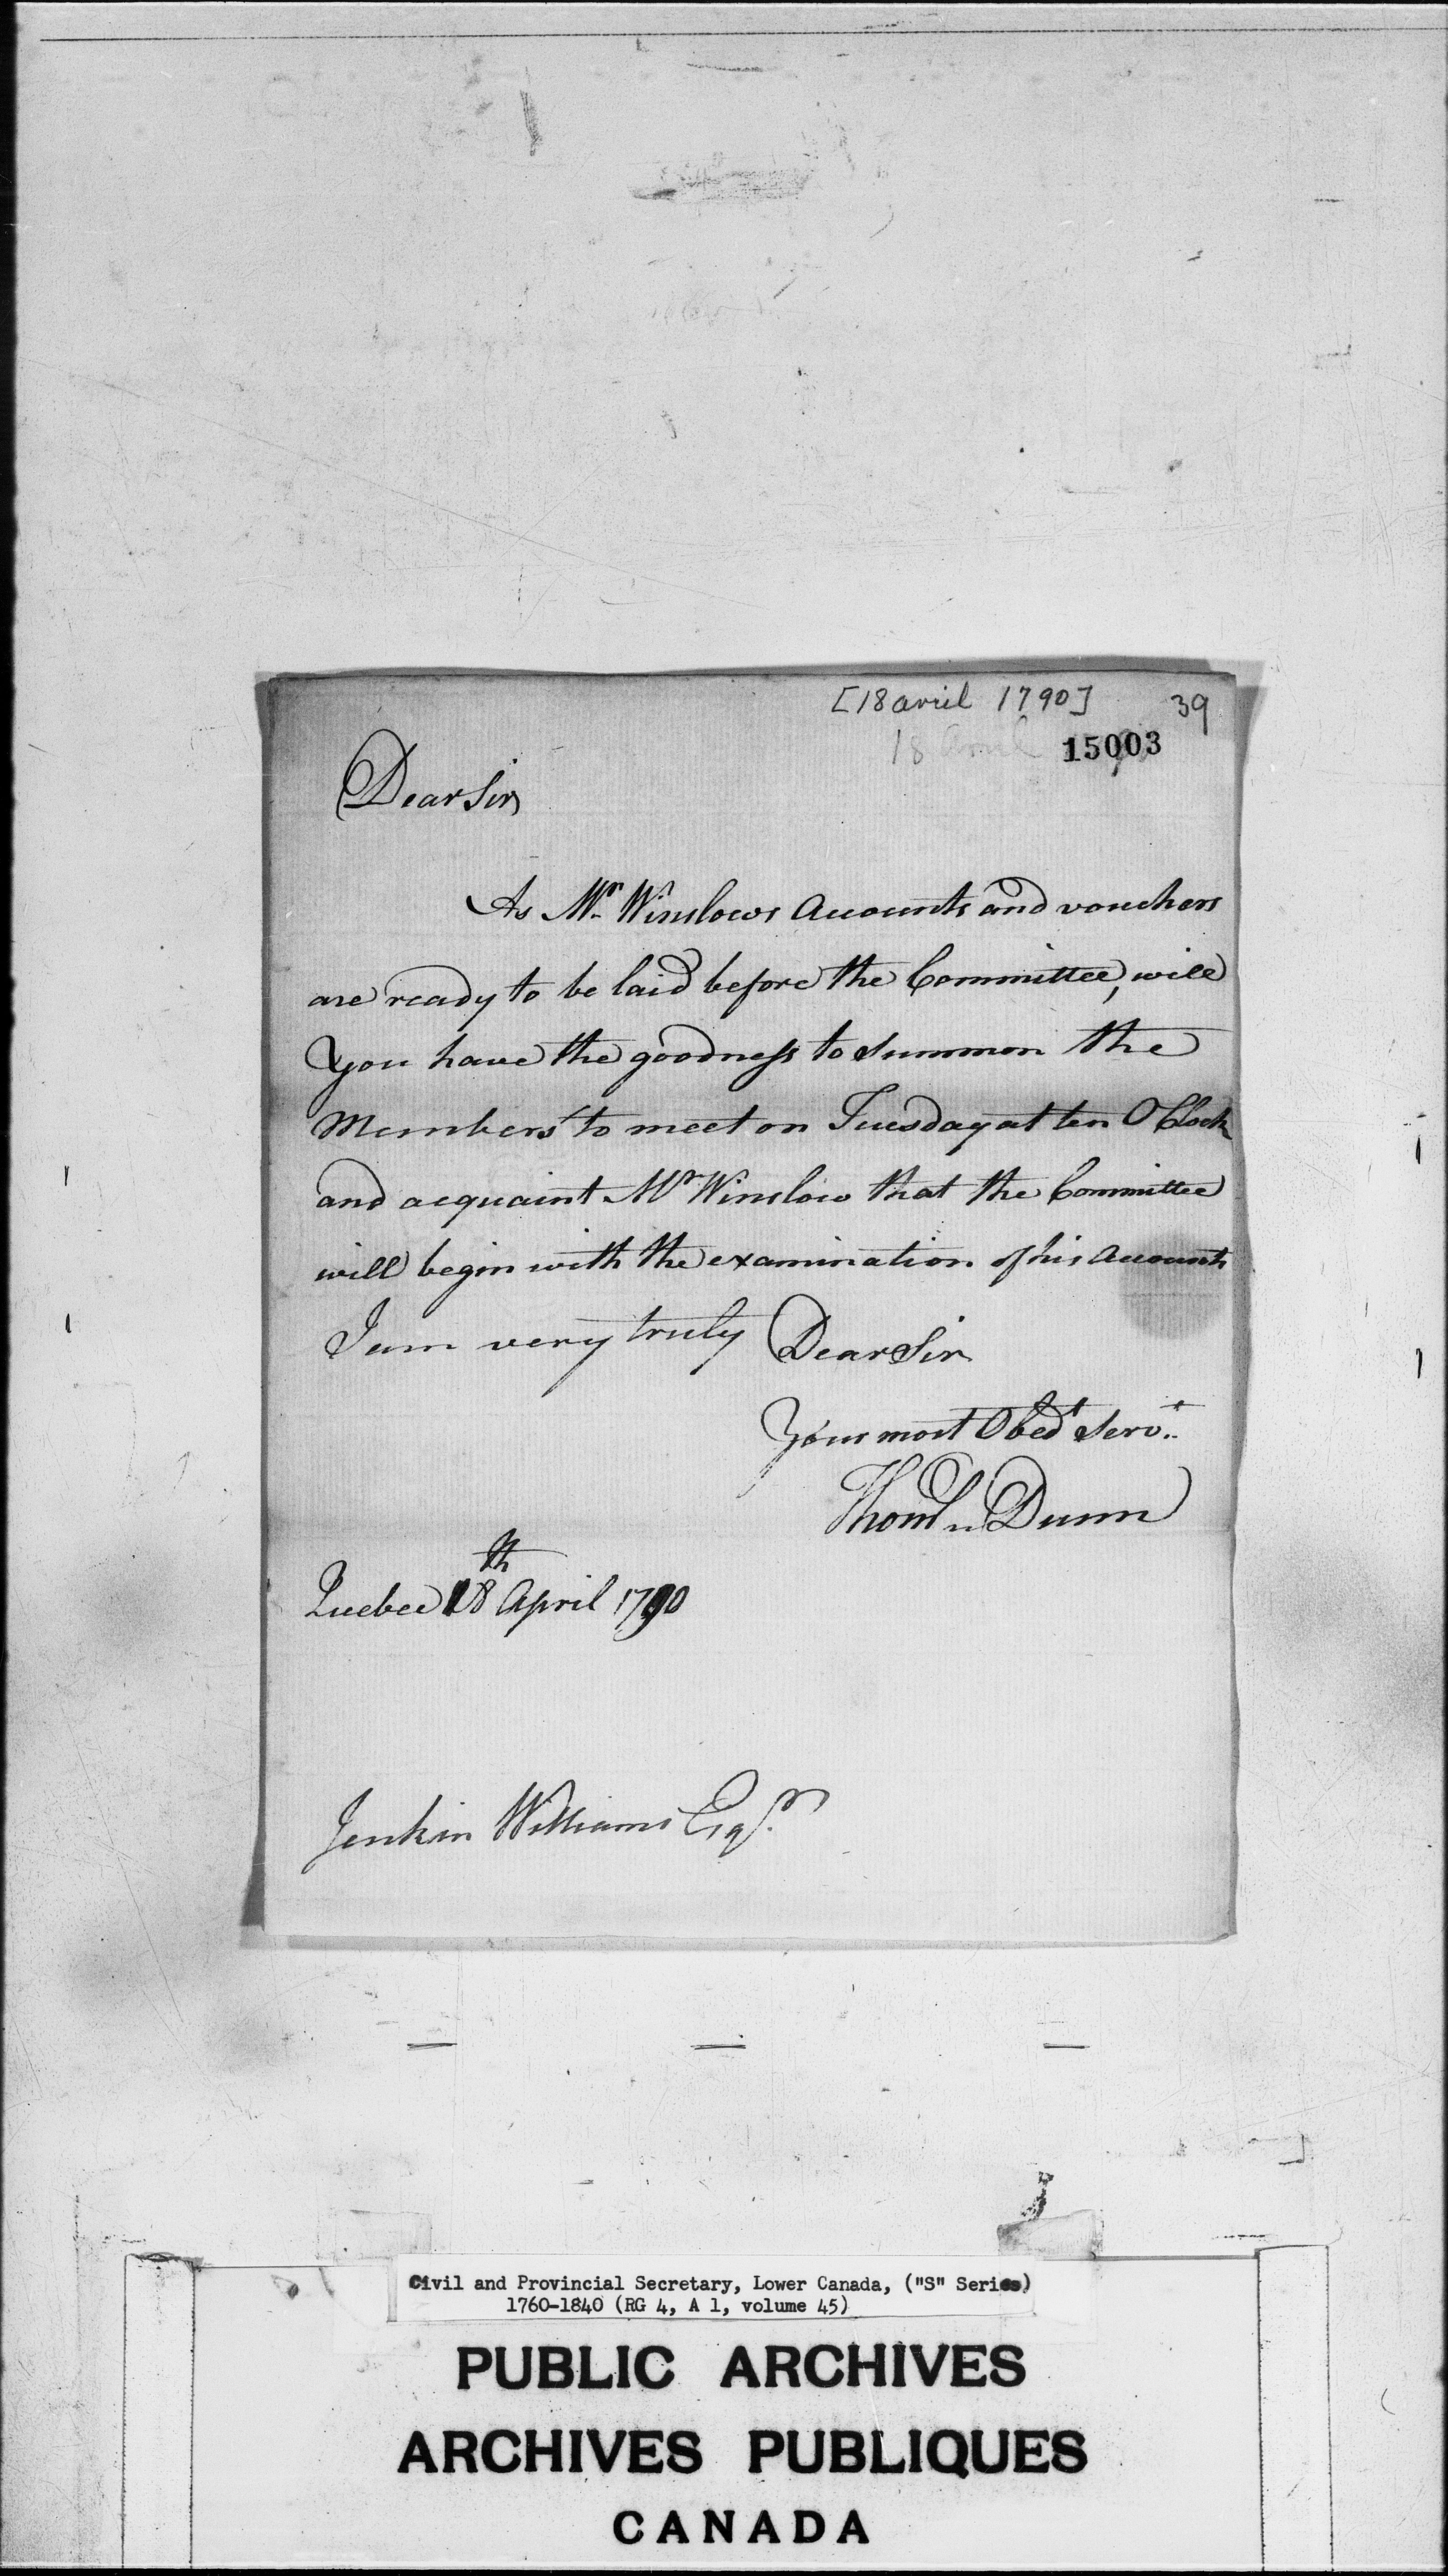 [18 avril 1790] 39
18 avril
15003
Dear Sir
As Mr. Winslows Accounts and vouchers
are ready to be laid before the Committee, will
You have the goodness to summon the
Members to meet on Tuesday at ten OClock
and acquaint Mr Winslow that the Committee
will begin with the examination of his Accounts
I am very truly Dear Sir
Your most Obedt Servt.
Thoms Dunn
Quebec 18th April 1790
Jenkin Williams Esqr.
Civil and Provincial Secretary, Lower Canada, ("S" Series)
1760-1840 (RG 4, A 1, volume 45)
PUBLIC ARCHIVES
ARCHIVES PUBLIQUES
CANADA